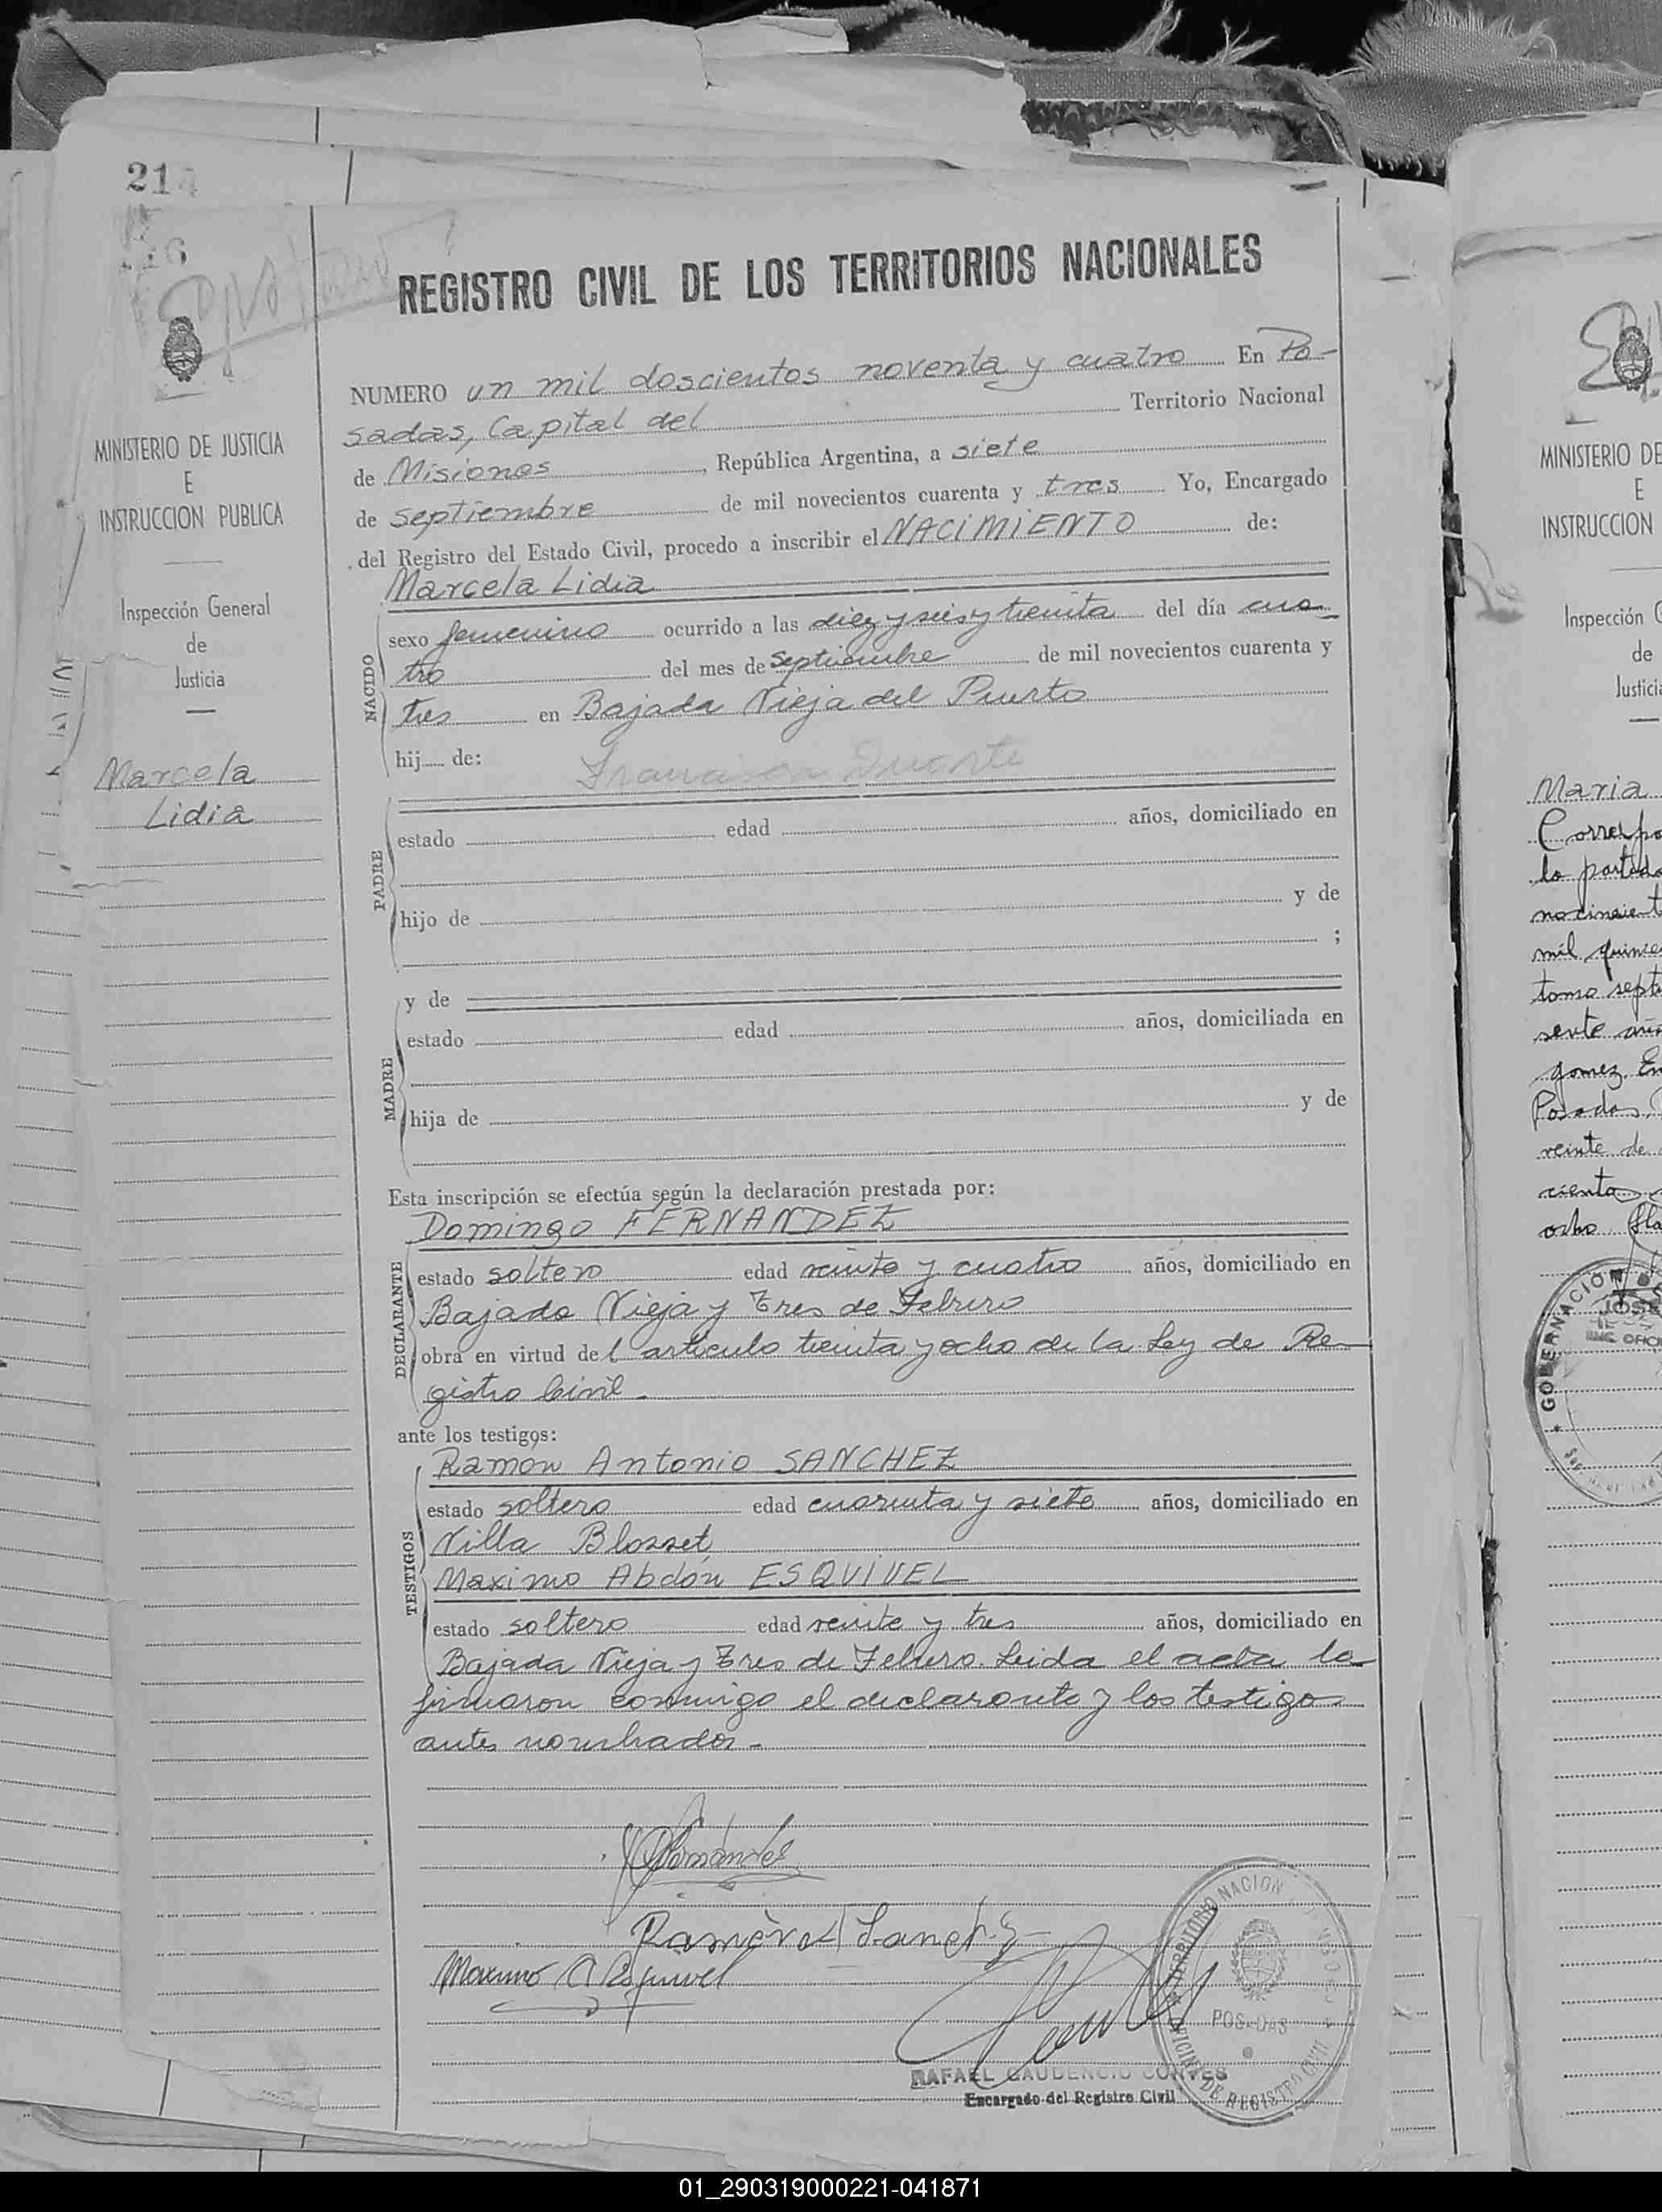 214
REGISTRO CIVIL DE LOS TERRITORIOS NACIONALES
NUMERO un mil doscientos noventa y cuatro En Po-
sadas, Capital del Territorio Nacional
de Misiones, República Argentina, a siete
de septiembre de mil novecientos cuarenta y tres Yo, Encargado
del Registro del Estado Civil, procedo a inscribir el NACIMIENTO de:
Marcela Lidia
sexo femenino ocurrido a las diez y seis y treinta del día cua-
tro del mes de Septiembre de mil novecientos cuarenta y
tres en Bajada Vieja del Puerto
NACIDO
hij de: Francisca Duarte
estado edad años, domiciliado en
PADRE
hijo de y de
;
y de
estado edad años, domiciliada en
MADRE
hija de y de
Esta inscripción se efectúa según la declaración prestada por:
Domingo FERNANDEZ
estado soltero edad veinte y cuatro años, domiciliado en
Bajada Vieja y Tres de Febrero
DECLARANTE
obra en virtud del articulo treinta y ocho de la Ley de Re-
gistro Civil.
ante los testigos:
Ramon Antonio SANCHEZ
estado soltero edad cuarenta y siete años, domiciliado en
Villa Blosset
TESTIGOS
Maximo Abdón ESQUIVEL
estado soltero edad veinte y tres años, domiciliado en
Bajada Vieja y Tres de Febrero. Leida el acta la
firmaron conmigo el declarante y los testigos
antes nombrados.-
Fernandez
Ramón A Sanchez
Maximo A Esquivel
RAFAEL GAUDENCIO CORTES
Encargado del Registro Civil
POSADAS
OFICINA DE REGISTRO CIVIL
MINISTERIO DE JUSTICIA
E
INSTRUCCION PUBLICA
Inspección General
de
Justicia
Marcela
Lidia
MINISTERIO DE
E
INSTRUCCION
Inspección G
de
Justicia
Maria
Correspo
la partida
nacimient
mil quinie
tomo sept
sente
gomez. En
Posadas,
veinte de
cienta
ocho
GOBERNACION
JOSE
01_290319000221-041871